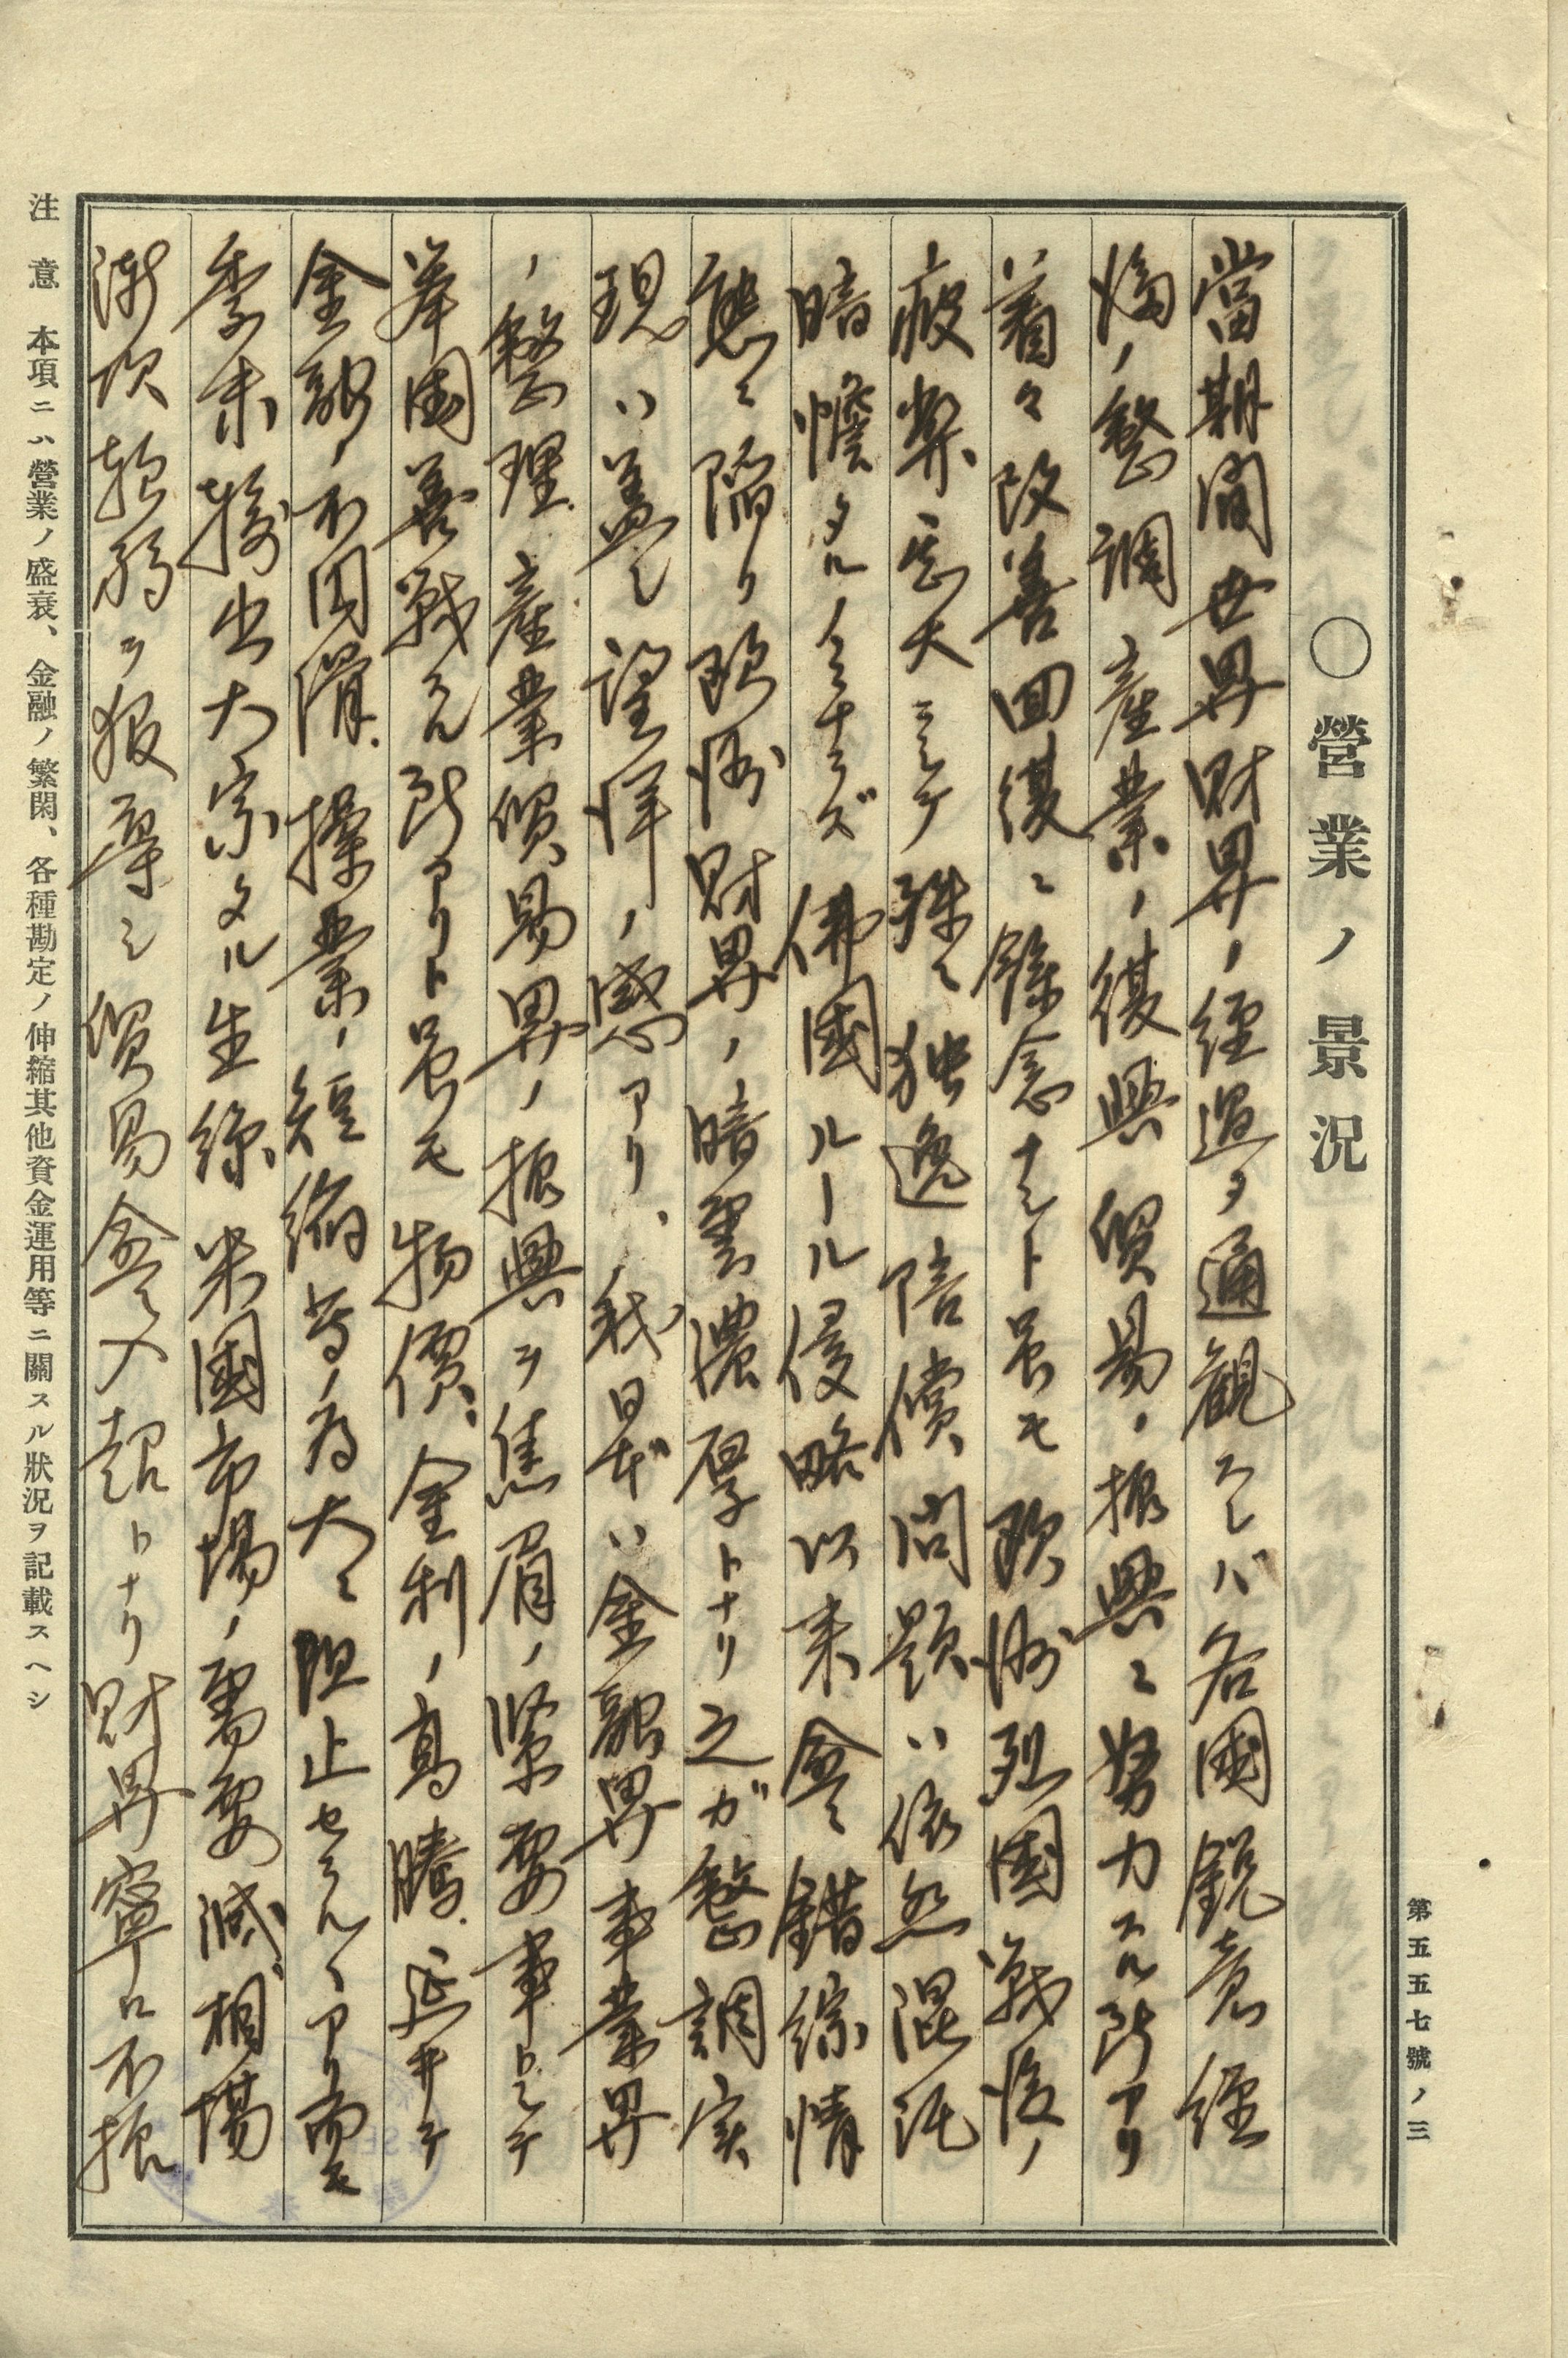 第五五七號ノ三
〇營業ノ景況
當期間世界財界ノ經過ヲ通観スレバ各國鋭意經
濟ノ整調産業ノ復興貿易ノ振興ニ努力スル所アリ
着々改善回復ニ餘念ナシト虽モ欧洲列国戦後ノ
疲弊甚大ニシテ殊ニ独逸賠償問題ハ依然混沌
暗憺タルノミナラズ佛國ルール侵略以来愈々錯綜情
態ニ陥リ欧洲財界ノ暗雲濃厚トナリ之ガ整調実
現ハ蓋シ望洋ノ感アリ、我日本ハ金融界事業界
ノ整理産業貿易界ノ振興ヲ焦眉ノ緊要事トシテ
挙国善戦スル所アリト虽モ物價、金利ノ高騰、延ヰテ
金融ノ不円滑、操業ノ短縮等ノ為大ニ阻止セラルヽアリ而モ
季末輸出大宗タル生絲米國市場ノ需要減、相場
漸次軟弱ヲ報導シ貿易愈々入超トナリ財界寧ロ不振
注意 本項ニハ營業ノ盛衰、金融ノ繁閑、各種勘定ノ伸縮其他資金運用等ニ關スル狀況ヲ記載スヘシ